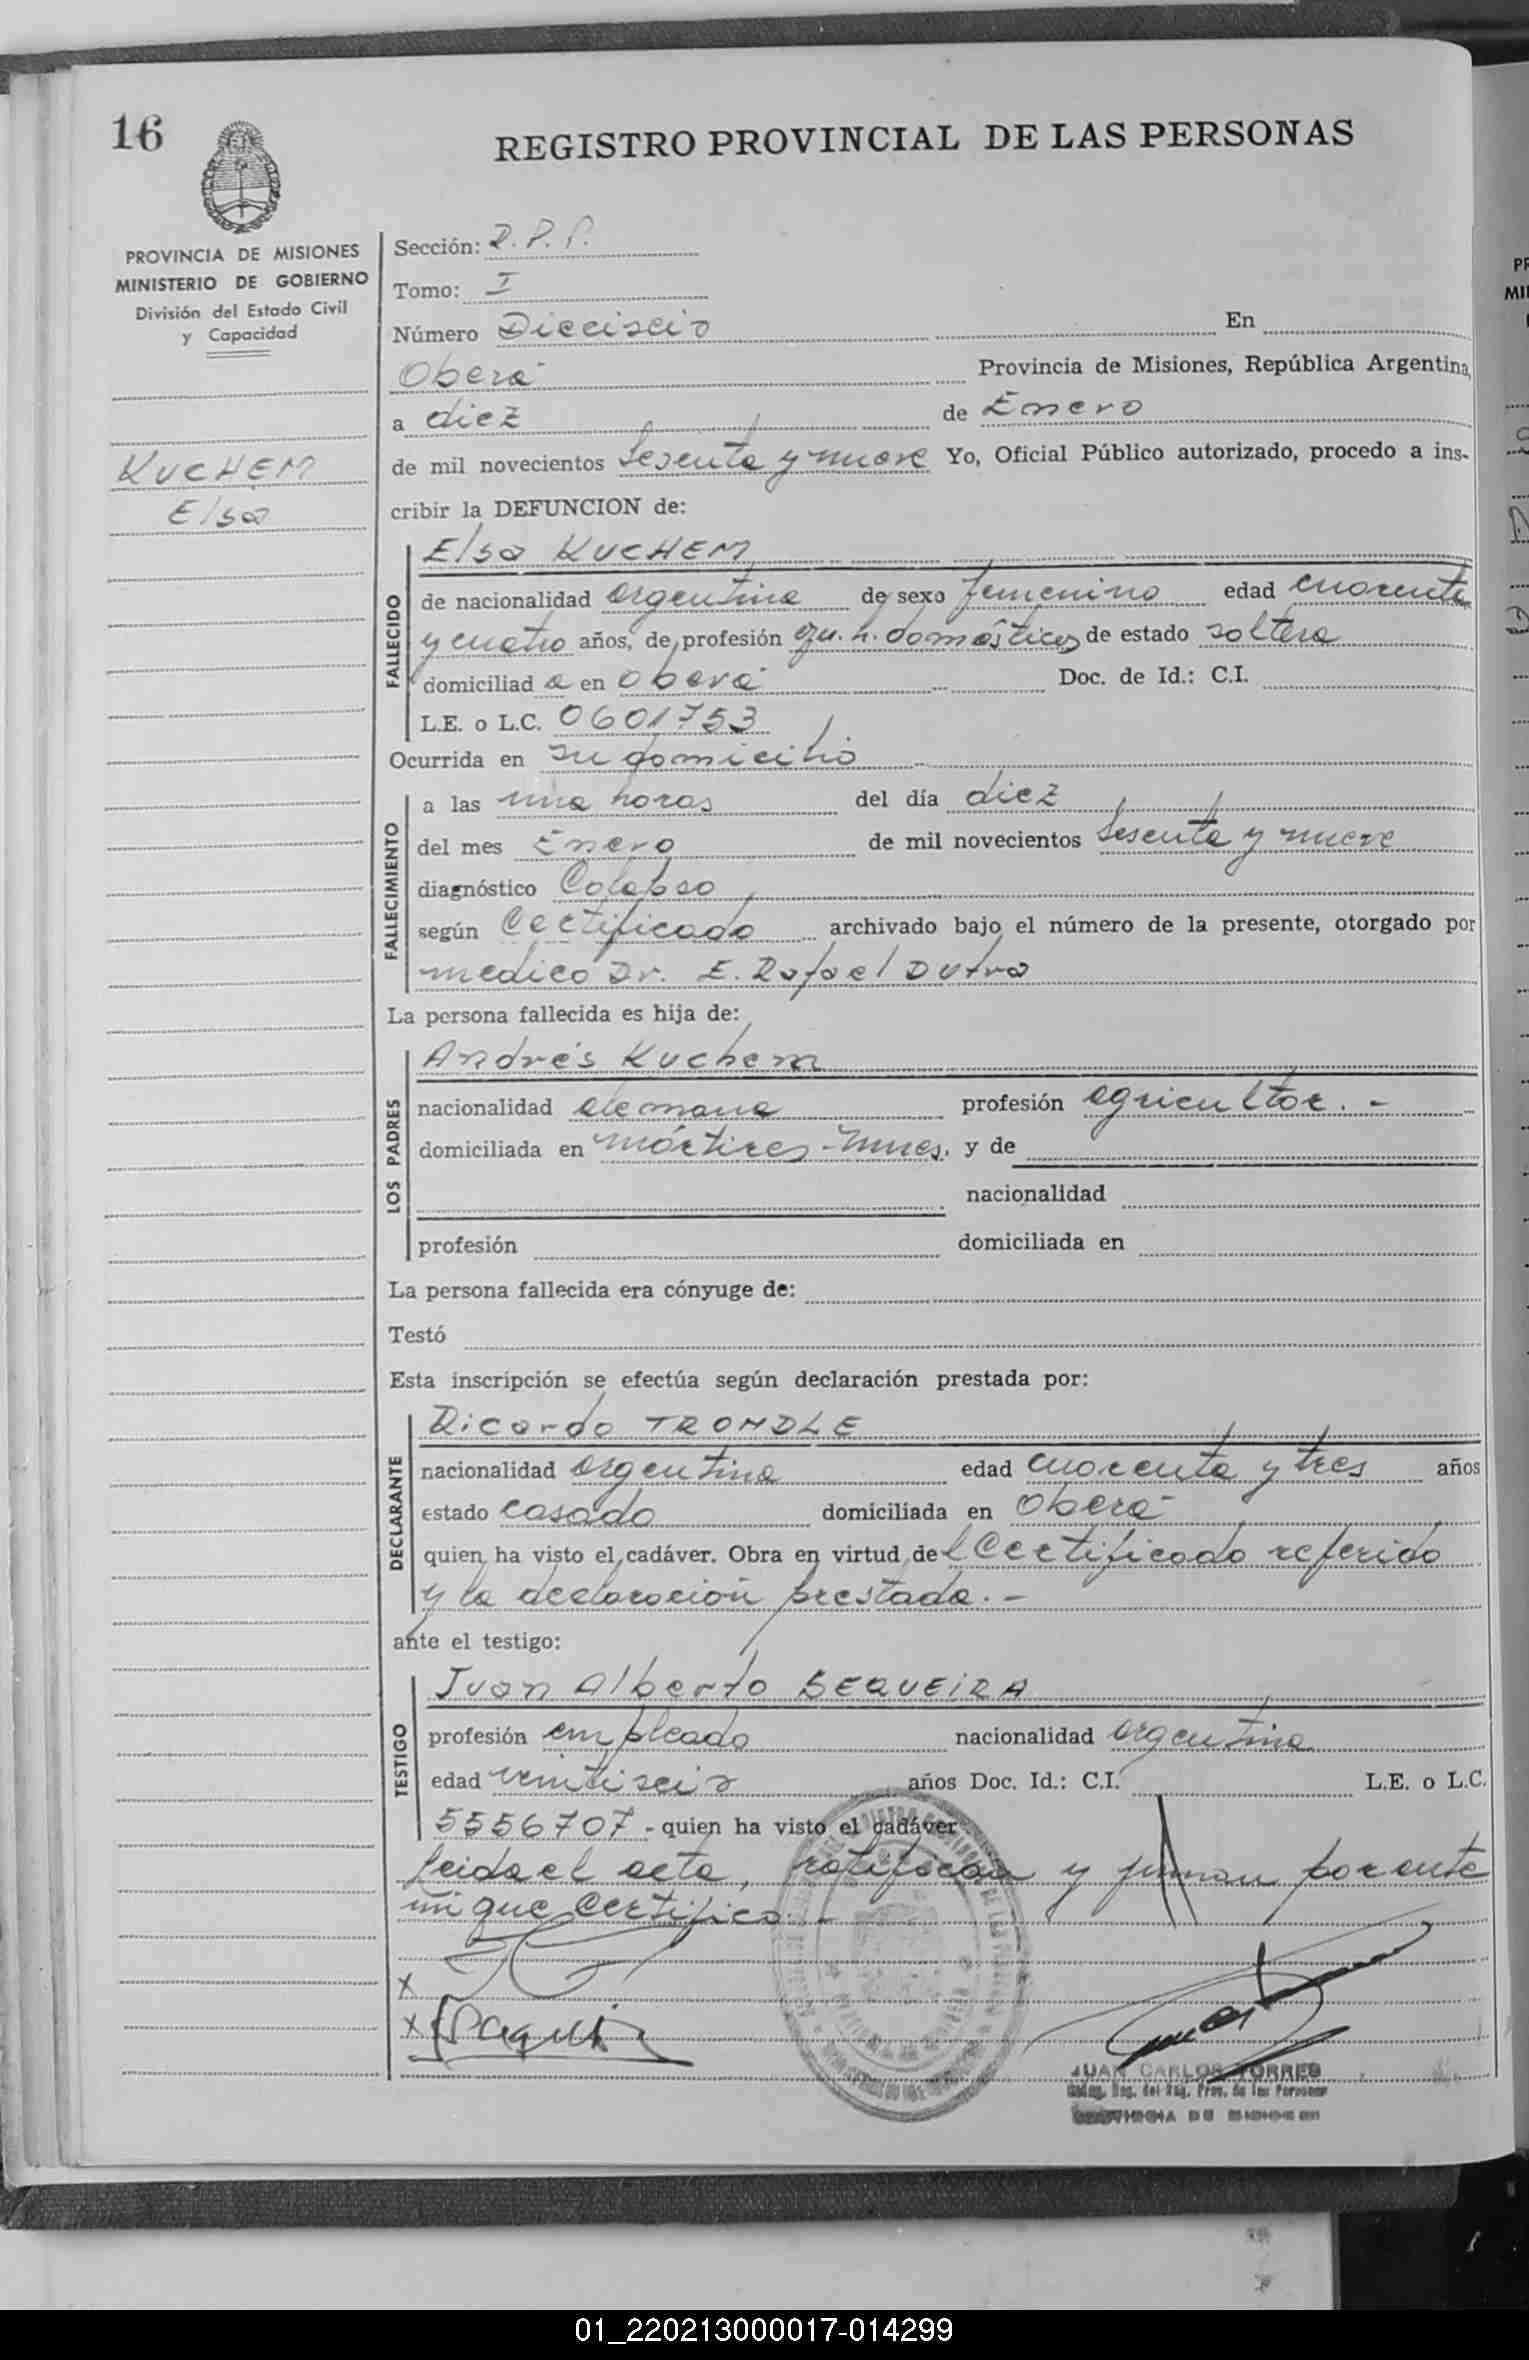 16
REGISTRO PROVINCIAL DE LAS PERSONAS
PROVINCIA DE MISIONES
MINISTERIO DE GOBIERNO
División del Estado Civil
y Capacidad
KUCHEM
Elsa
Sección: R.P.P.
Tomo: I
Número Dieciseis En
Oberá Provincia de Misiones, República Argentina,
a diez de Enero
de mil novecientos sesenta y nueve Yo, Oficial Público autorizado, procedo a ins-
cribir la DEFUNCION de:
FALLECIDO
Elsa KUCHEM
de nacionalidad argentina de sexo femenino edad cuarenta
y cuatro años, de profesión domésticos de estado soltera
domiciliad a en Oberá Doc. de Id.: C.I.
L.E. o L.C. 0601753
Ocurrida en su domicilio
FALLECIMIENTO
a las una horas del día diez
del mes Enero de mil novecientos sesenta y nueve
diagnóstico Colapso
según Certificado archivado bajo el número de la presente, otorgado por
medico Dr. E. Rafael Dutra
La persona fallecida es hija de:
LOS PADRES
Andrés Kuchem
nacionalidad alemana profesión agricultor. -
domiciliada en Mártires-Mnes, y de
nacionalidad
profesión domiciliada en
La persona fallecida era cónyuge de:
Testó
Esta inscripción se efectúa según declaración prestada por:
DECLARANTE
Ricardo TROMDLE
nacionalidad argentina edad cuarenta y tres años
estado casado domiciliada en Oberá
quien ha visto el cadáver. Obra en virtud del Certificado referido
y la declaración prestada. -
ante el testigo:
TESTIGO
Juan Alberto SEQUEIRA
profesión empleado nacionalidad argentina
edad veintiseis años Doc. Id.: C.I. L.E. o L.C.
5556707 - quien ha visto el cadáver
Leida el acta, ratifican y firman por ante
mi que certifico. -
x
x
JUAN CARLOS TORRES
del Reg. Prov. de las Personas
PROVINCIA DE MISIONES
01_220213000017-014299